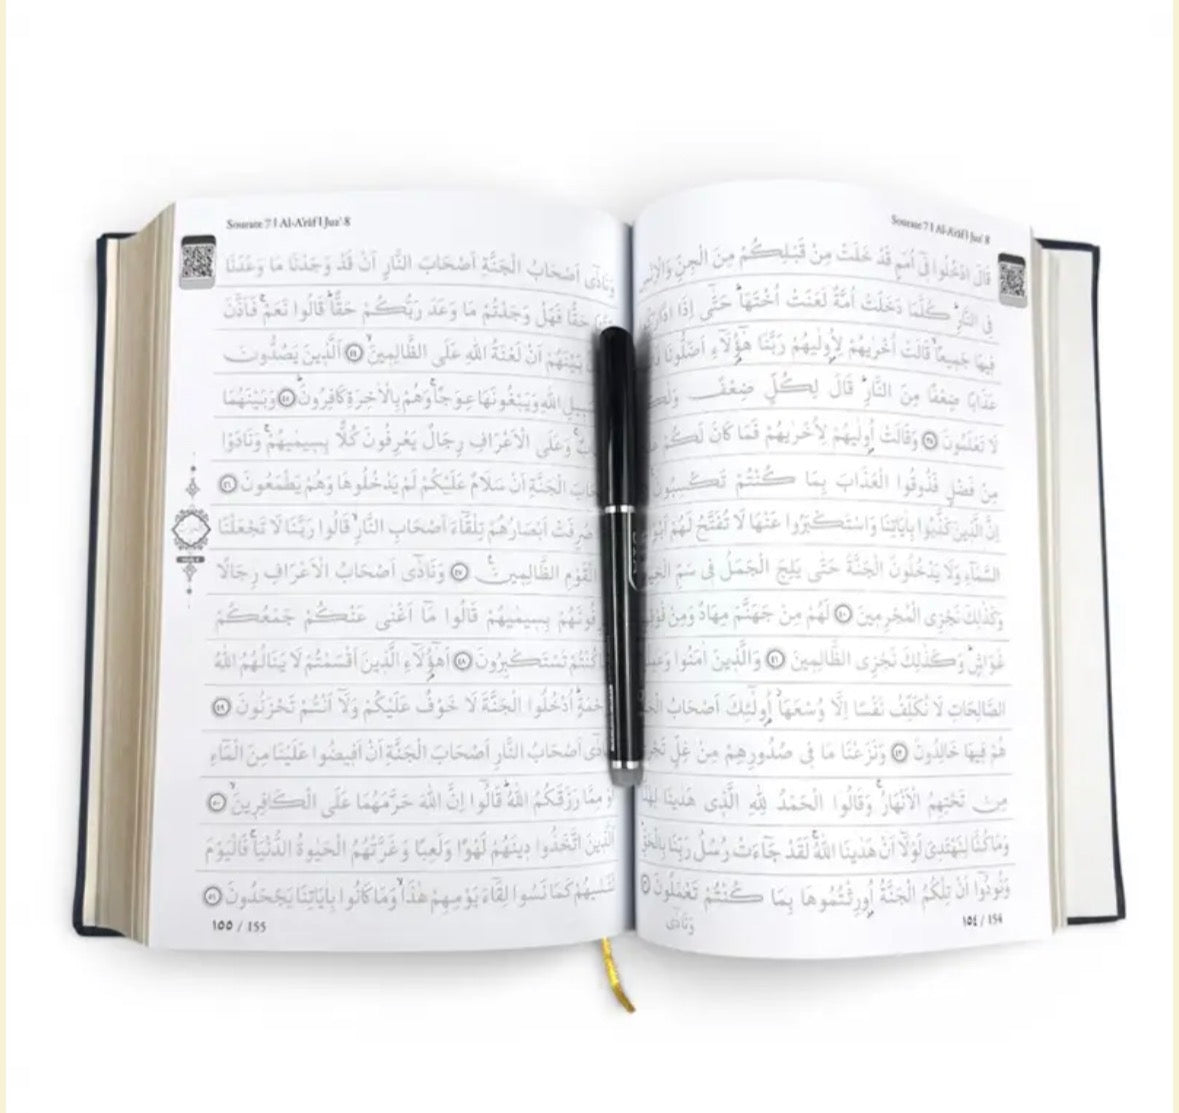 Sourate 7 I Al-A'râf I Juz' 8
قَالَ ادْخُلُوا فِٓى اُمَمٍ قَدْ خَلَتْ مِنْ قَبْلِكُمْ مِنَ الْجِنِّ وَالْاِنْسِ
فِى النَّارِۜ كُلَّمَا دَخَلَتْ اُمَّةٌ لَعَنَتْ اُخْتَهَاۜ حَتّٰٓى اِذَا
فِيهَا جَمِيعًاۙ قَالَتْ اُخْرٰيهُمْ لِاُو۫لٰيهُمْ رَبَّنَا هٰٓؤُ۬لَٓاءِ اَضَلُّونَا
عَذَابًا ضِعْفًا مِنَ النَّارِۜ قَالَ لِكُلٍّ ضِعْفٌ
لَا تَعْلَمُونَ ﴿٣٨﴾ وَقَالَتْ اُو۫لٰيهُمْ لِاُخْرٰيهُمْ فَمَا كَانَ لَكُمْ
مِنْ فَضْلٍ فَذُوقُوا الْعَذَابَ بِمَا كُنْتُمْ تَكْسِبُونَ
اِنَّ الَّذِينَ كَذَّبُوا بِاٰيَاتِنَا وَاسْتَكْبَرُوا عَنْهَا لَا تُفَتَّحُ لَهُمْ
السَّمَٓاءِ وَلَا يَدْخُلُونَ الْجَنَّةَ حَتّٰى يَلِجَ الْجَمَلُ فِى سَمِّ
وَكَذٰلِكَ نَجْزِى الْمُجْرِمِينَ ﴿٤٠﴾ لَهُمْ مِنْ جَهَنَّمَ مِهَادٌ وَمِنْ
غَوَاشٍۜ وَكَذٰلِكَ نَجْزِى الظَّالِمِينَ ﴿٤١﴾ وَالَّذِينَ اٰمَنُوا
الصَّالِحَاتِ لَا نُكَلِّفُ نَفْسًا اِلَّا وُسْعَهَاۘ اُو۬لٰٓئِكَ اَصْحَابُ
هُمْ فِيهَا خَالِدُونَ ﴿٤٢﴾ وَنَزَعْنَا مَا فِى صُدُورِهِمْ مِنْ غِلٍّ
مِنْ تَحْتِهِمُ الْاَنْهَارُۚ وَقَالُوا الْحَمْدُ لِلّٰهِ الَّذِى هَدٰينَا لِهٰذَا
وَمَا كُنَّا لِنَهْتَدِىَ لَوْلَٓا اَنْ هَدٰينَا اللّٰهُۚ لَقَدْ جَٓاءَتْ رُسُلُ رَبِّنَا بِالْحَقِّ
وَنُودُٓوا اَنْ تِلْكُمُ الْجَنَّةُ اُو۫رِثْتُمُوهَا بِمَا كُنْتُمْ تَعْمَلُونَ ﴿٤٣﴾
وَنَادٰٓى
١٥٤ / 154
Sourate 7 I Al-A'râf I Juz' 8
وَنَادٰٓى اَصْحَابُ الْجَنَّةِ اَصْحَابَ النَّارِ اَنْ قَدْ وَجَدْنَا مَا وَعَدَنَا
حَقًّا فَهَلْ وَجَدْتُمْ مَا وَعَدَ رَبُّكُمْ حَقًّاۜ قَالُوا نَعَمْۚ فَاَذَّنَ
بَيْنَهُمْ اَنْ لَعْنَةُ اللّٰهِ عَلَى الظَّالِمِينَۙ ﴿٤٤﴾ اَلَّذِينَ يَصُدُّونَ
سَبِيلِ اللّٰهِ وَيَبْغُونَهَا عِوَجًاۚ وَهُمْ بِالْاٰخِرَةِ كَافِرُونَۘ ﴿٤٥﴾ وَبَيْنَهُمَا
وَعَلَى الْاَعْرَافِ رِجَالٌ يَعْرِفُونَ كُلًّا بِسِيمٰيهُمْۚ وَنَادَوْا
الْجَنَّةِ اَنْ سَلَامٌ عَلَيْكُمْ لَمْ يَدْخُلُوهَا وَهُمْ يَطْمَعُونَ ﴿٤٦﴾
صُرِفَتْ اَبْصَارُهُمْ تِلْقَٓاءَ اَصْحَابِ النَّارِۙ قَالُوا رَبَّنَا لَا تَجْعَلْنَا
الْقَوْمِ الظَّالِمِينَ۟ ﴿٤٧﴾ وَنَادٰٓى اَصْحَابُ الْاَعْرَافِ رِجَالًا
بِسِيمٰيهُمْ قَالُوا مَٓا اَغْنٰى عَنْكُمْ جَمْعُكُمْ
كُنْتُمْ تَسْتَكْبِرُونَ ﴿٤٨﴾ اَهٰٓؤُ۬لَٓاءِ الَّذِينَ اَقْسَمْتُمْ لَا يَنَالُهُمُ اللّٰهُ
اُدْخُلُوا الْجَنَّةَ لَا خَوْفٌ عَلَيْكُمْ وَلَٓا اَنْتُمْ تَحْزَنُونَ ﴿٤٩﴾
اَصْحَابُ النَّارِ اَصْحَابَ الْجَنَّةِ اَنْ اَفِيضُوا عَلَيْنَا مِنَ الْمَٓاءِ
اَوْ مِمَّا رَزَقَكُمُ اللّٰهُۜ قَالُٓوا اِنَّ اللّٰهَ حَرَّمَهُمَا عَلَى الْكَافِرِينَۙ ﴿٥٠﴾
الَّذِينَ اتَّخَذُوا دِينَهُمْ لَهْوًا وَلَعِبًا وَغَرَّتْهُمُ الْحَيٰوةُ الدُّنْيَاۚ فَالْيَوْمَ
نَنْسٰيهُمْ كَمَا نَسُوا لِقَٓاءَ يَوْمِهِمْ هٰذَاۙ وَمَا كَانُوا بِاٰيَاتِنَا يَجْحَدُونَ ﴿٥١﴾
١٥٥ / 155